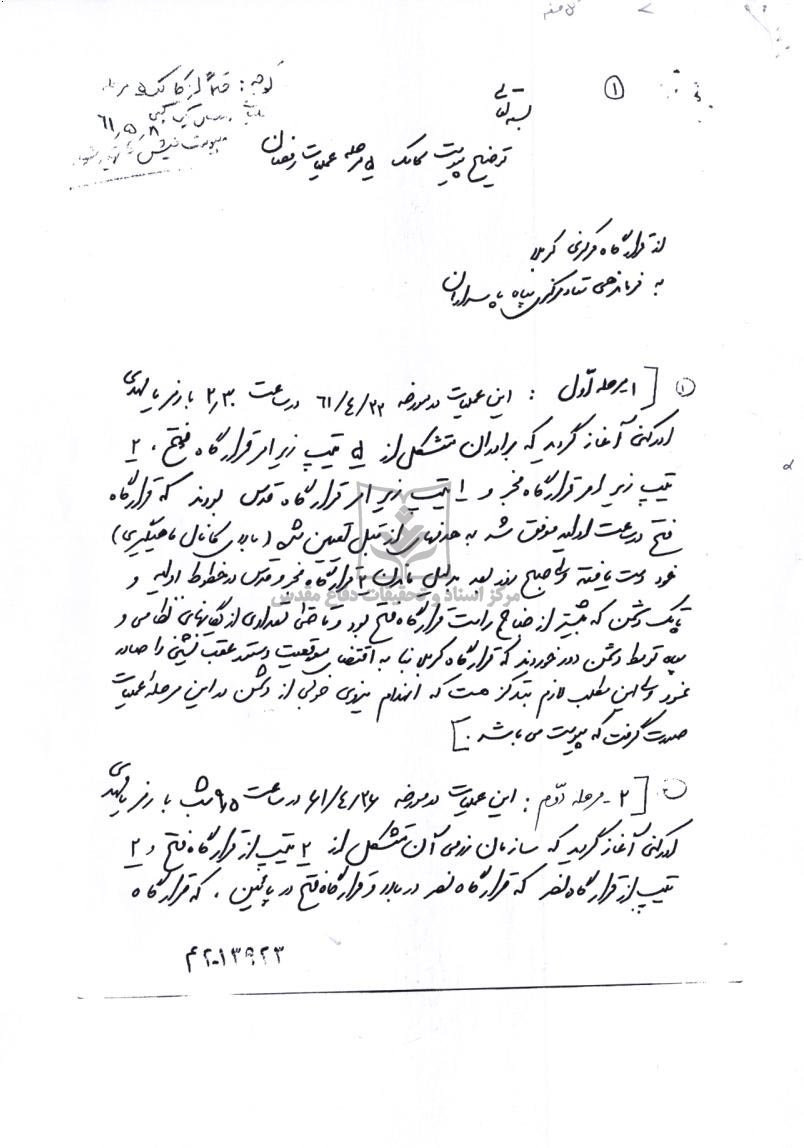 ۱
بسمه تعالی
توجه :
۶۱/۵/۸
توضیح پیوست کالک ۵ مرحله عملیات رمضان
از قرارگاه مرکزی کربلا
به فرماندهی ستاد مرکزی سپاه پاسداران
۱ [ ۱- مرحله اوّل : این عملیات در مورخه ۶۱/۴/۲۳ در ساعت ۲۱,۳۰ با رمز یا مهدی
ادرکنی آغاز گردید که برادران متشکل از ۵ تیپ زیر امر قرارگاه فتح ، ۲
تیپ زیر امر قرارگاه فجر و ۱ تیپ زیر امر قرارگاه قدس بودند که قرارگاه
فتح در ساعت اولیه موفق شد به هدفهای از قبل تعیین شده (بالای کانال ماهیگیری)
خود دست یافته ولی صبح روز بعد بدلیل ماندن ۲ قرارگاه فجر و قدس در خطوط اولیه و
تانک دشمن که بیشتر از جناح راست قرارگاه فتح بود و تا حتی تعدادی از گردانهای نظامی و
سپاه توسط دشمن دور خوردند که قرارگاه کربلا بنا به اقتضای موقعیت دستور عقب نشینی را صادر
نمود ولی این مطلب لازم بتذکر است که انهدام نیروی خوبی از دشمن در این مرحله عملیات
صورت گرفت که پیوست می باشد . ]
[ ۲- مرحله دوّم : این عملیات در مورخه ۶۱/۴/۲۶ در ساعت ۹,۵ شب با رمز یا مهدی
ادرکنی آغاز گردید که سازمان رزمی آن متشکل از ۲ تیپ از قرارگاه فتح و ۲
تیپ از قرارگاه نصر که قرارگاه نصر در بالا و قرارگاه فتح در پائین . که قرارگاه
۴۲۰۱۳۹۲۳
مرکز اسناد و تحقیقات دفاع مقدس